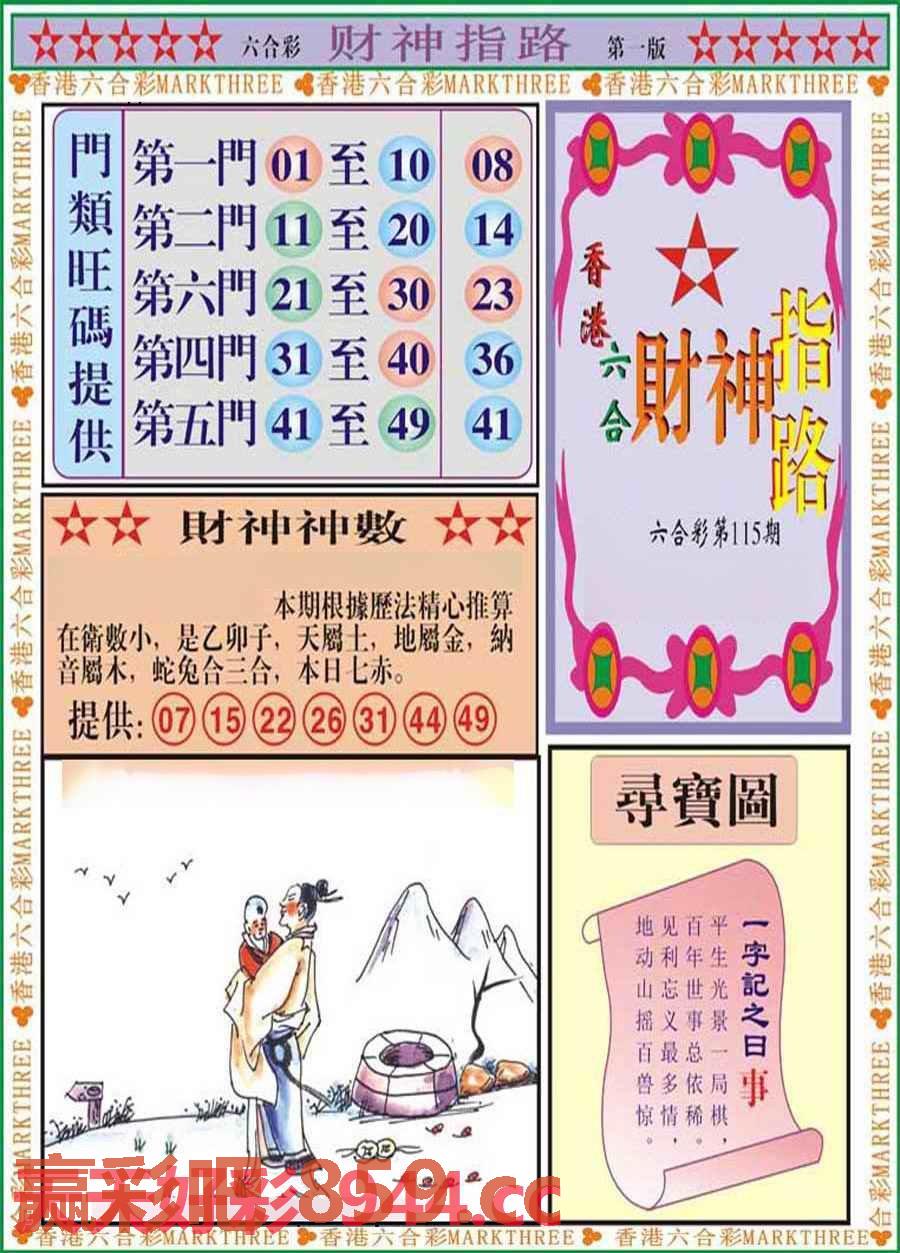 六合彩 财神指路 第一版
香港六合彩MARKTHREE 香港六合彩MARKTHREE 香港六合彩MARKTHREE
門類旺碼提供
第一門 01 至 10 08
第二門 11 至 20 14
第六門 21 至 30 23
第四門 31 至 40 36
第五門 41 至 49 41
香港六合
財神指路
六合彩第115期
財神神數
本期根據歷法精心推算
在衛數小，是乙卯子，天屬土，地屬金，納
音屬木，蛇兔合三合，本日七赤。
提供: 07 15 22 26 31 44 49
尋寶圖
一字記之曰 事
平生光景一局棋，
百年世事总依稀。
见利忘义最多情，
地动山摇百兽惊。
香港六合彩MARKTHREE 香港六合彩MARKTHREE 香港六合彩MARKTHREE